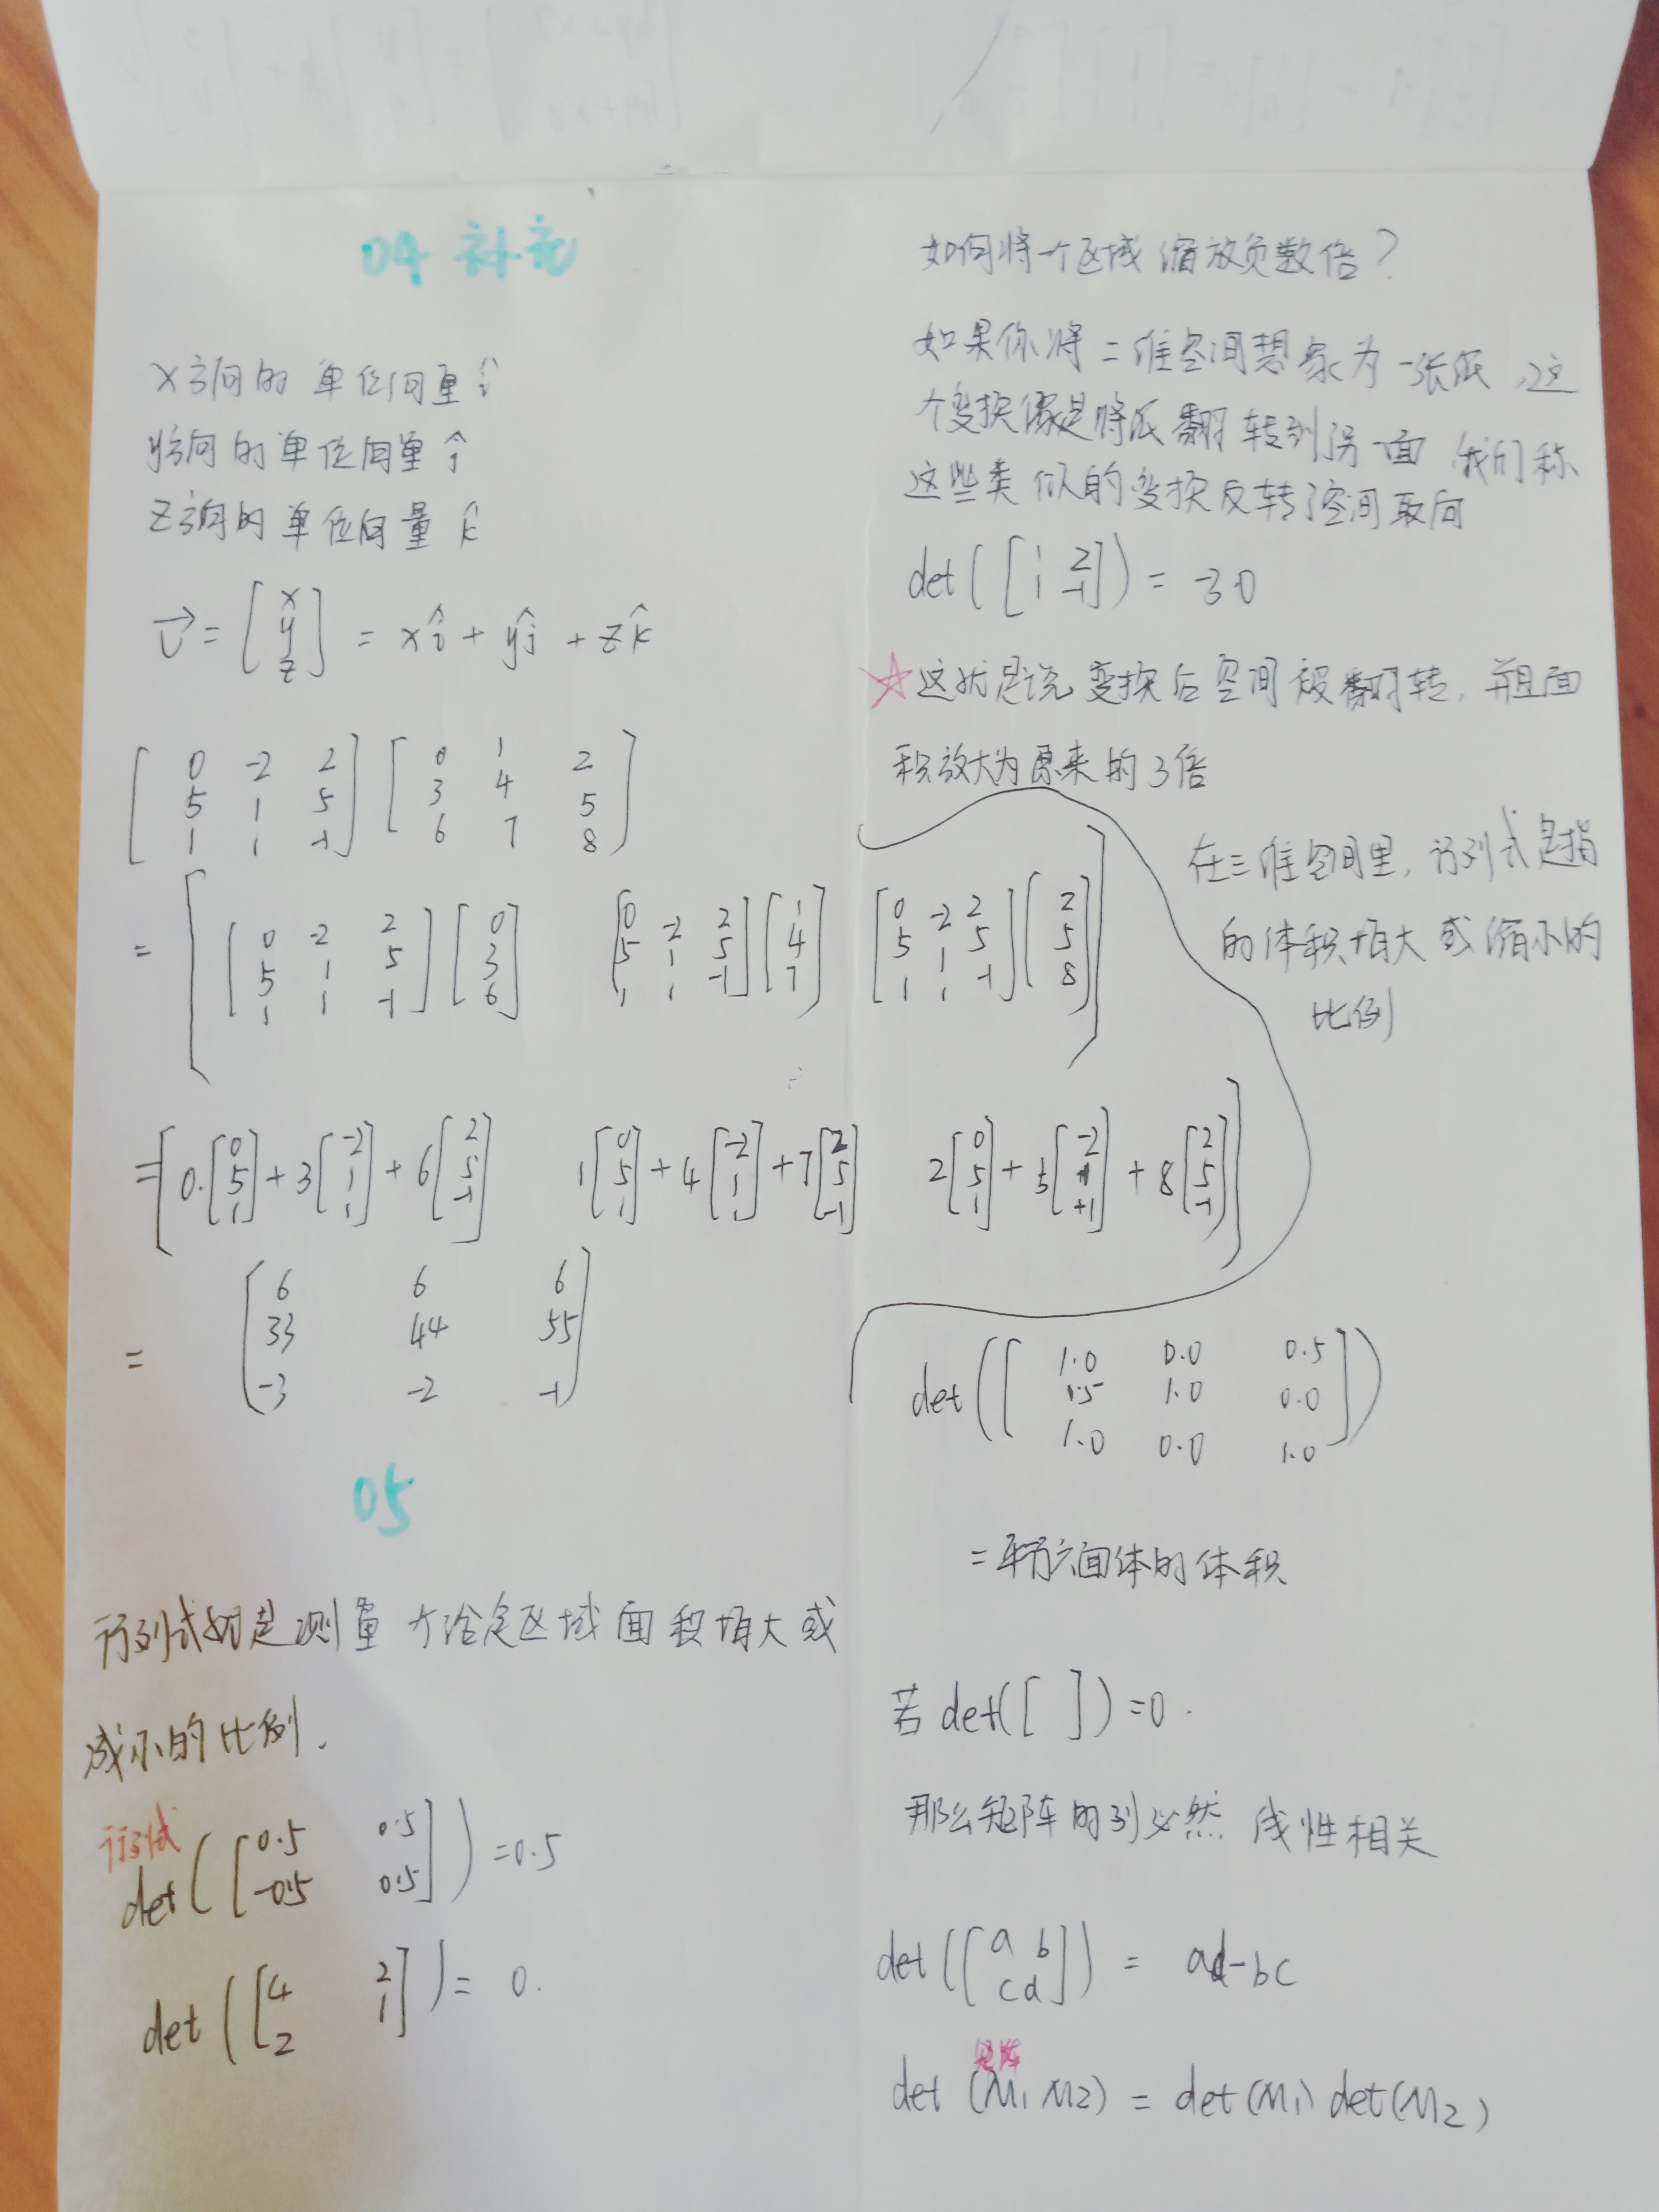 04 补充
x方向的单位向量 î
y方向的单位向量 ĵ
z方向的单位向量 k̂
v⃗ = [x y z] = xî + yĵ + zk̂
[0 -2 2; 5 1 5; 1 1 -1] [0 1 2; 3 4 5; 6 7 8]
= [ [0 -2 2; 5 1 5; 1 1 -1] [0; 3; 6] [0 -2 2; 5 1 5; 1 1 -1] [1; 4; 7] [0 -2 2; 5 1 5; 1 1 -1] [2; 5; 8] ]
= [ 0·[0; 5; 1] + 3[-2; 1; 1] + 6[2; 5; -1] 1[0; 5; 1] + 4[-2; 1; 1] + 7[2; 5; -1] 2[0; 5; 1] + 5[-2; 1; +1] + 8[2; 5; -1] ]
= [6 6 6; 33 44 55; -3 -2 -1]
05
行列式就是测量一个给定区域面积增大或
减小的比例.
行列式
det([0.5 0.5; -0.5 0.5]) = 0.5
det([4 2; 2 1]) = 0.
如何将一个区域缩放负数倍?
如果你将二维空间想象为一张纸,这
个变换像是将纸翻转到另一面,我们称
这些类似的变换反转了空间取向
det([1 2; 1 -1]) = -3.0
☆这就是说变换后空间被翻转,并且面
积放大为原来的3倍
在三维空间里,行列式是指
的体积增大或缩小的
比例
det([1.0 0.0 0.5; 1.5 1.0 0.0; 1.0 0.0 1.0])
=平行六面体的体积
若det([ ])=0.
那么矩阵的列必然 线性相关
det([a b; c d]) = ad-bc
矩阵
det(M1 M2) = det(M1) det(M2)